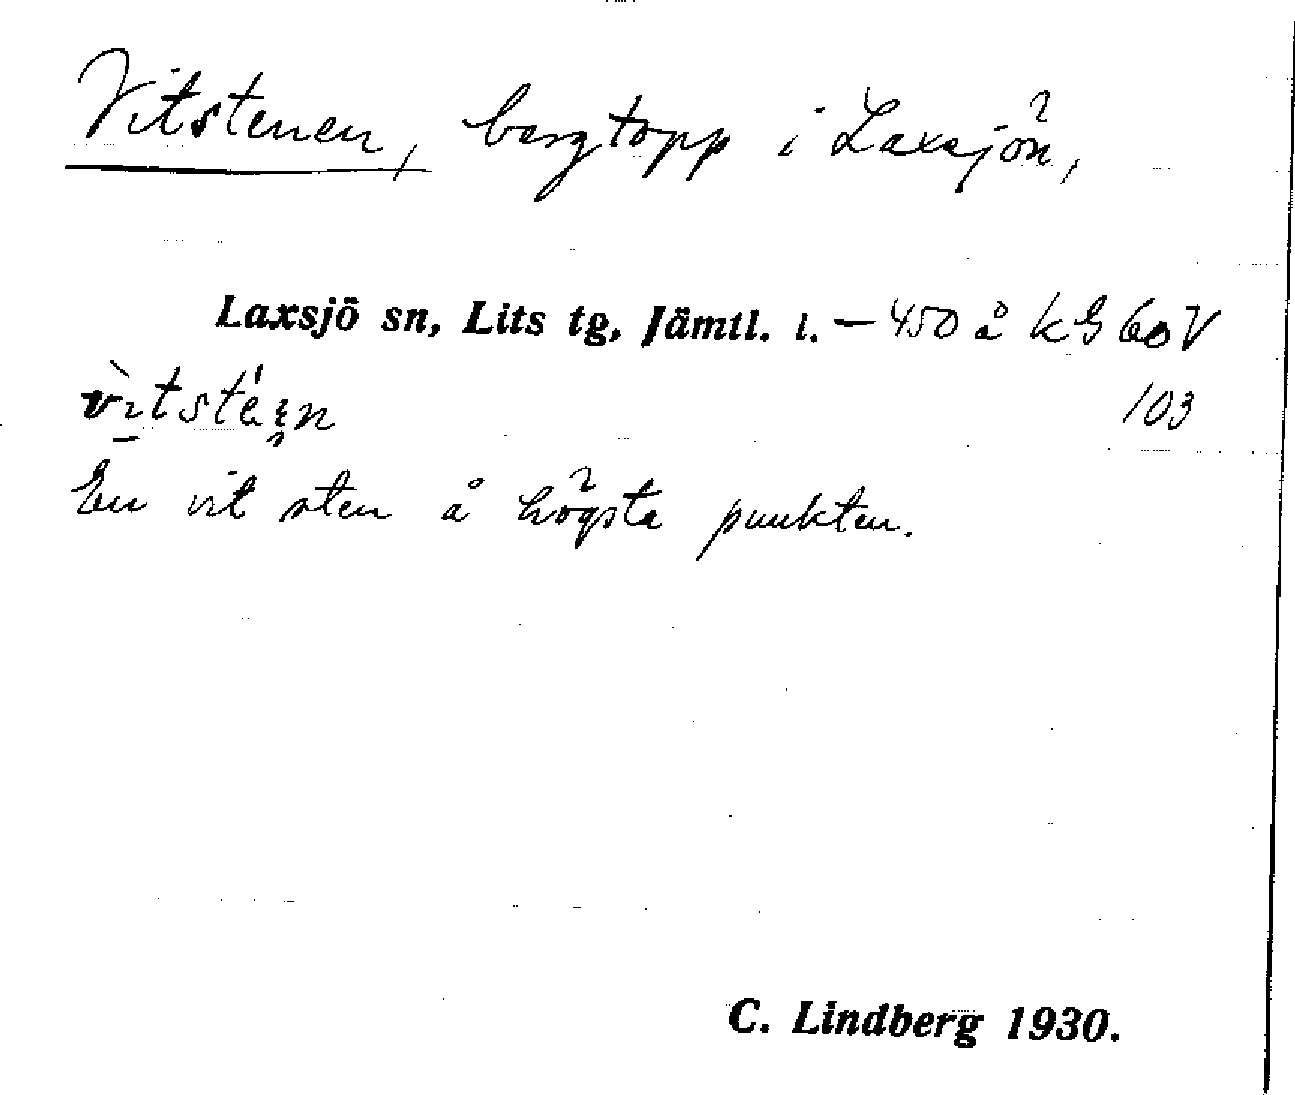 Vitstenen, bergtopp i Laxsjön,
Laxsjö sn, Lits tg, Jämtl. l. – 450 å kG 60 V
103
En vit sten å högsta punkten.
C. Lindberg 1930.